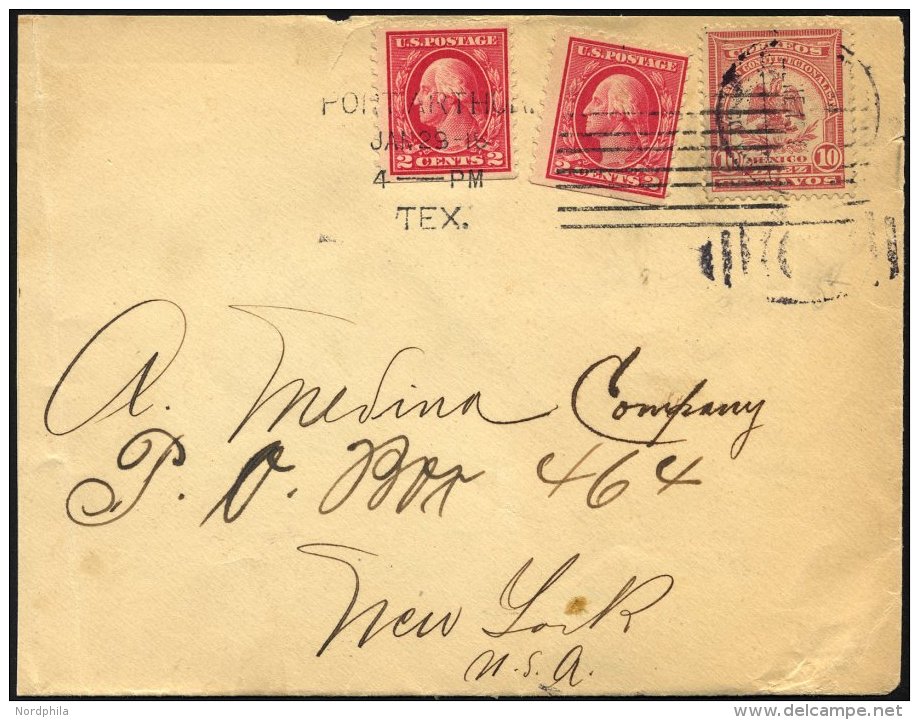 U.S. POSTAGE
2 CENTS 2
U.S. POSTAGE
2 CENTS 2
CORREOS
MEXICO
10
PORT ARTHUR.
JAN 29
4 — PM
TEX.
A. Medina Company
P. O. Box 464
New York
U.S.A.
Nordphila
delcampe.net